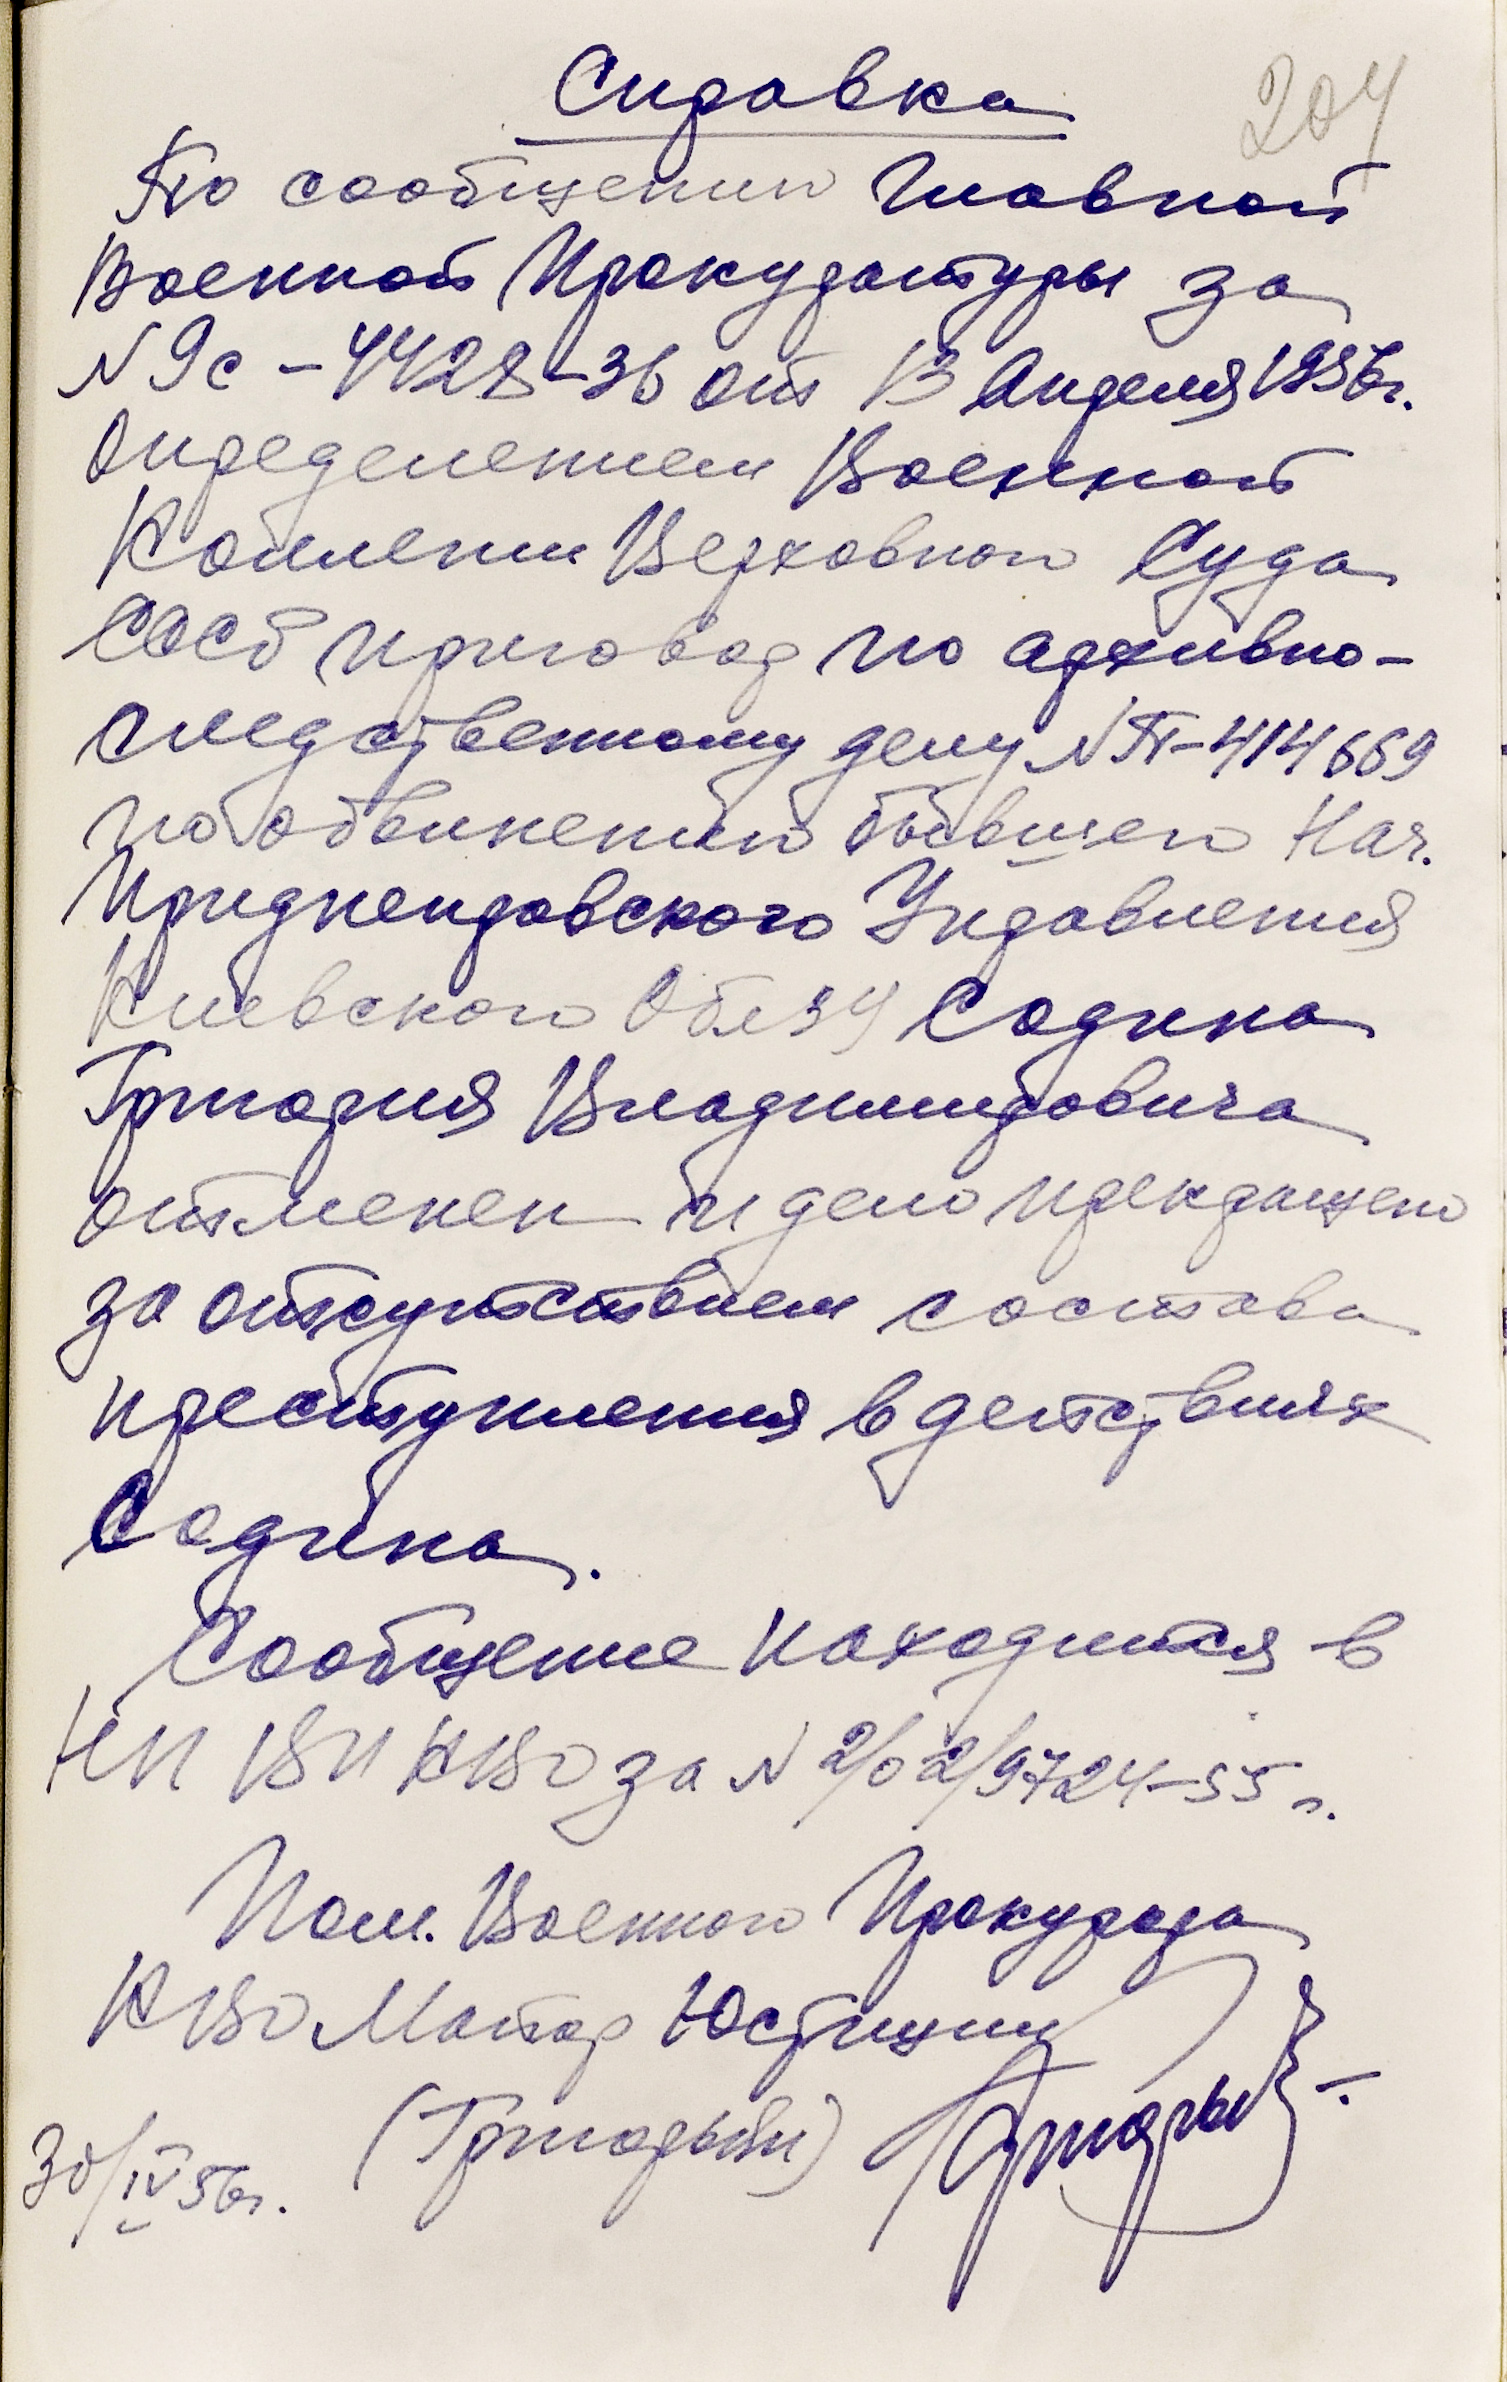 Справка
204
По сообщению Главной
Военной Прокуратуры за
N 9с-4428-36 от 13 Апреля 1956г.
Определением Военной
Коллегии Верховного Суда
СССР приговор по архивно-
следственному делу N П-414669
по обвинению бывшего Нач.
Приднепровского Управления
Киевского ОблЗУ Содина
Григория Владимировича
отменен и дело прекращено
за отсутствием состава
преступления в действиях
Содина.
Сообщение находится в
НП ВП КВО за N 2/02/9724-55 г.
Пом. Военного Прокурора
КВО Майор Юстиции
(Григорьев)
30/IV 56г.